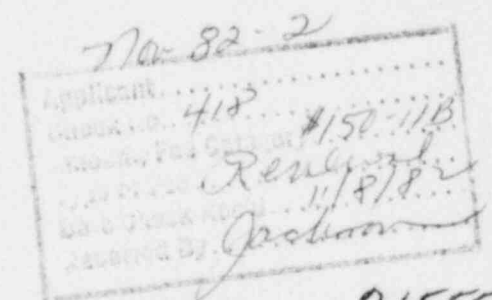 No. 82-2
Applicant........................
Check No. 418
Amount, Fee Category $150-11B
Type of Fee Renewal
Date Check Rec'd. 11/8/82
Received By. Jackson